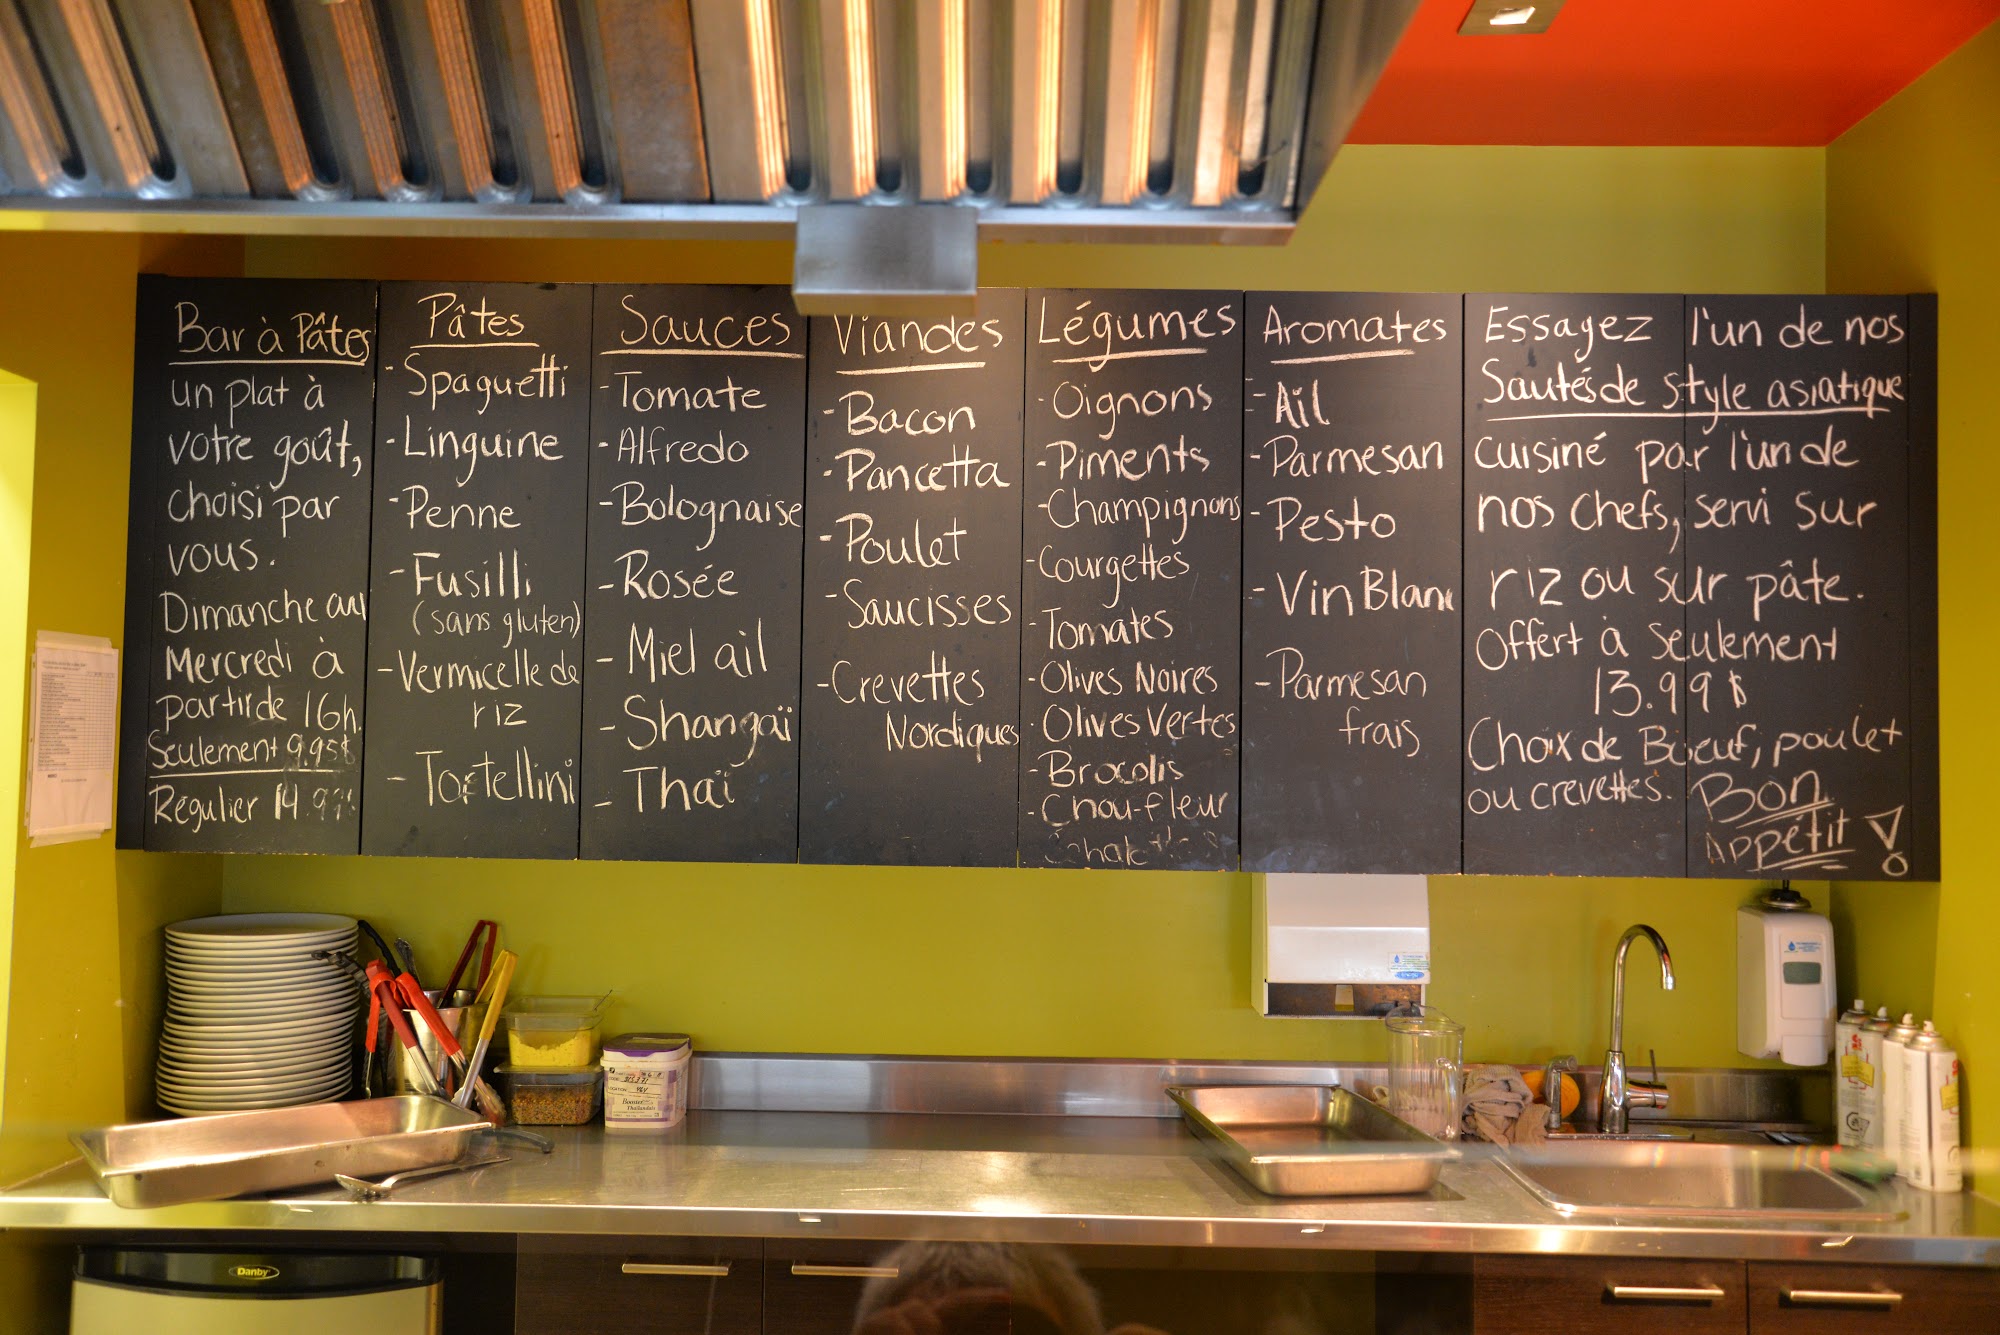 Bar à Pâtes
un plat à
votre goût,
choisi par
vous.
Dimanche au
Mercredi à
partir de 16h.
Seulement 9.95$
Régulier
Pâtes
- Spaguetti
- Linguine
- Penne
- Fusilli
(sans gluten)
- Vermicelle de
riz
- Tortellini
Sauces
- Tomate
- Alfredo
- Bolognaise
- Rosée
- Miel ail
- Shangaï
- Thaï
Viandes
- Bacon
- Pancetta
- Poulet
- Saucisses
- Crevettes
Nordiques
Légumes
- Oignons
- Piments
- Champignons
- Courgettes
- Tomates
- Olives Noires
- Olives Vertes
- Brocolis
- Chou-fleur
Aromates
- Ail
- Parmesan
- Pesto
- Vin Blanc
- Parmesan
frais
Essayez l'un de nos
Sautés de style asiatique
cuisiné par l'un de
nos chefs, servi sur
riz ou sur pâte.
Offert à seulement
13.99$
Choix de Boeuf, poulet
ou crevettes.
Bon
Appétit !
Danby